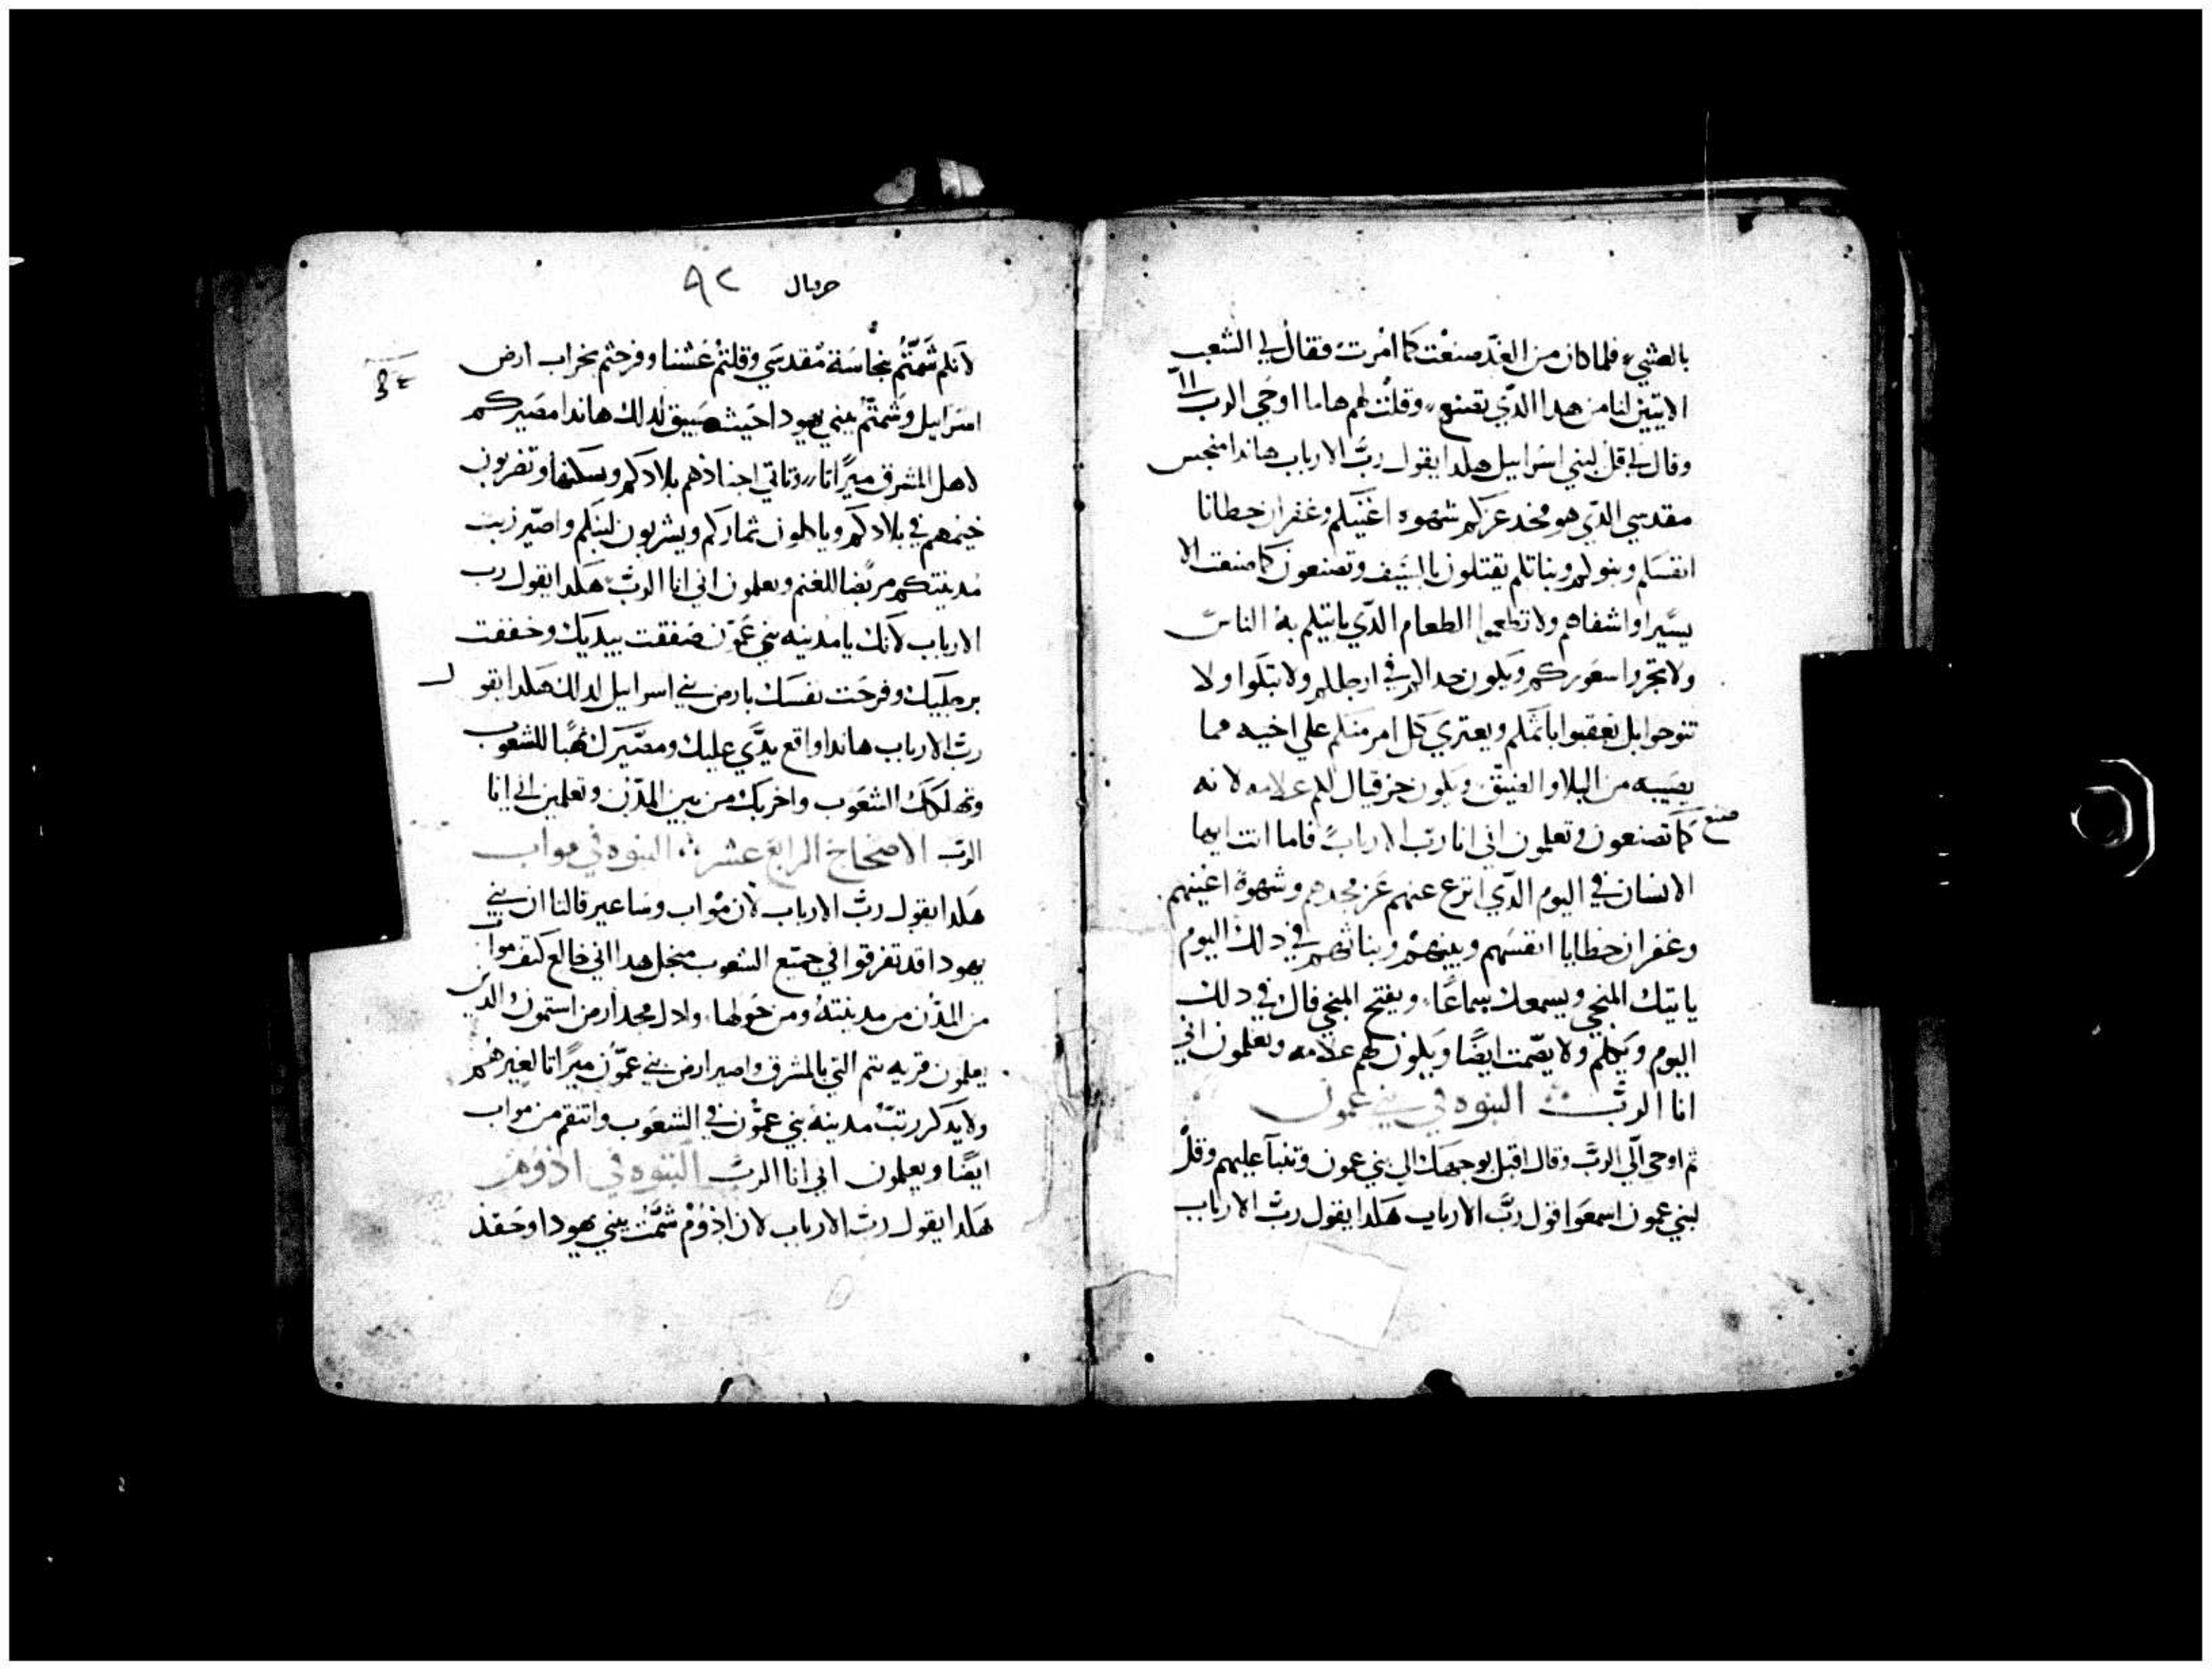 بالعشي فلما كان من الغد صنعت كما امرت فقال لي الشعب
الا تبين لنا من هدا الدي تصنع وقلت لهم هاما اوحي الرب الي
وقال لي قل لبني اسراييل هلدا يقول رب الارباب هاندا منجس
مقدسي الدي هو مجد عزكم شهوه اعينكم وغفران خطايا
انفسكم وبنوكم وبناتكم يقتلون بالسيف وتصنعون كما صنعت الا
ولا تطعموا الطعام الدي ياتيكم به الناس
ولا تجزوا شعوركم ويكون حدالكم في ارجلكم ولا تبكوا ولا
تنوحوا بل تعقبوا باتمكم ويعتري كل امر منكم علي اخيه مما
يصيبه من البلا والضيق ويكون حزقيال لكم علامه لانه
صنع
كما تصنعون وتعلمون اني انا رب الارباب فاما انت ايها
الانسان في اليوم الدي انزع عنهم عز مجدهم وشهوة اعينهم
وغفران خطايا انفسهم وبنيهم وبناتهم في دلك اليوم
ياتيك المنجي ويسمعك سماعا ويفتح المنجي فاك في دلك
اليوم وتكلم ولا يصمت ايضا ويكون لهم علامه وتعلمون اني
انا الرب النبوه في بني عمون
ثم اوحي الي الرب وقال اقبل بوجهك الي بني عمون وتنبا عليهم وقل
لبني عمون اسمعوا قول رب الارباب هلدا يقول رب الارباب
٩٢
لانكم شمتم بنجاسة مقدسي وقلتم عشنا وفرحتم بخراب ارض
اسراييل وشمتم ببني يهودا حيث سبيوا لدلك هاندا مصيركم
لاهل المشرق ميراثا وتاتي اجنادهم بلادكم ويسكنها وتضربون
خيمهم في بلادكم وياكلون ثماركم ويشربون لبنكم واصير
مدينتكم مربضا للغنم ويعلمون اني انا الرب هلدا يقول رب
الارباب لانك يا مدينه بني عمون صفقت بيديك وخففت
برجليك وفرحت نفسك بارض بني اسراييل لدلك هلدا يقول
رب الارباب هاندا واقع يدي عليك ومصيرك نهبا للشعوب
وتهلكك الشعوب واخربك من بين المدن وتعلمين اني انا
الرب الاصحاح الرابع عشر النبوه في مواب
هلدا يقول رب الارباب لان مواب وساعير قالتا ان بني
يهودا قد تفرقوا في جميع الشعوب منجل هدا اني خالع كتف مواب
من المدن من مدينته ومن حولها
قريه يتم التي بالمشرق واصير ارض بني عمون ميراثا لغيرهم
ولا يدكر مدينة بني عمون في الشعوب وانتقم من مواب
ايضا ويعلمون اني انا الرب النبوه في ادوم
هلدا يقول رب الارباب لان ادوم شمت ببني يهودا وحقد